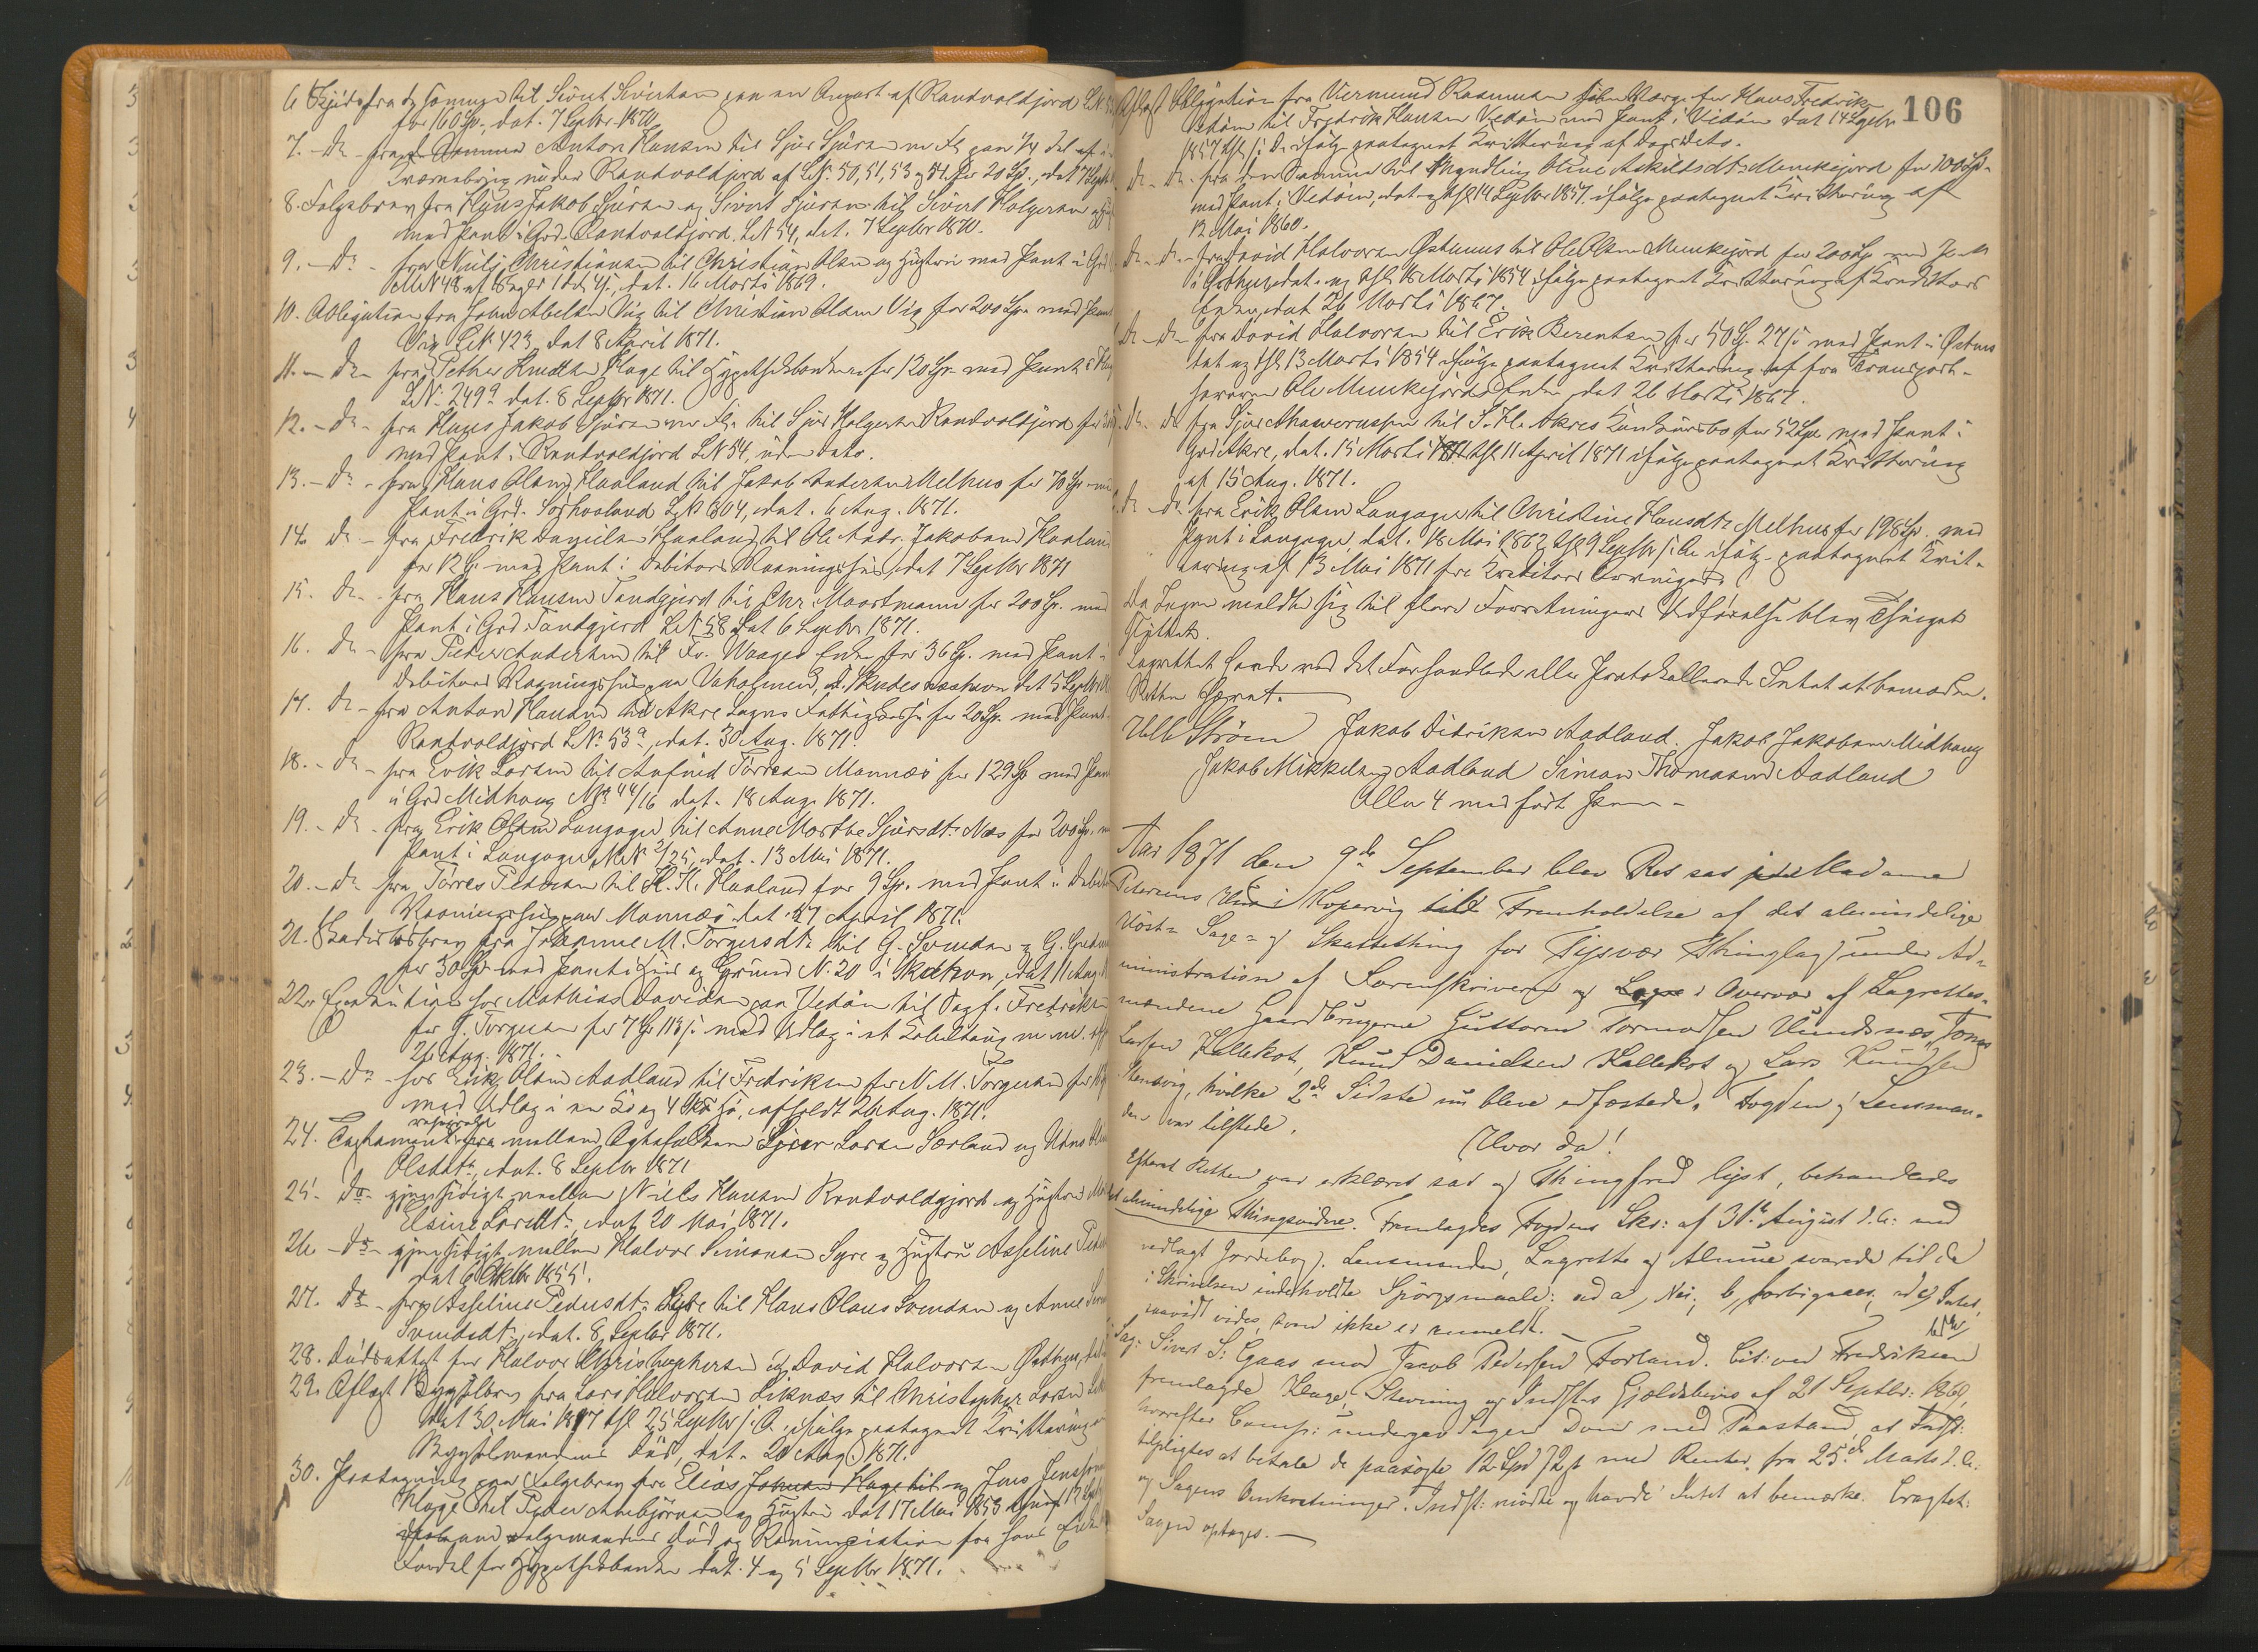 6 Skjøde fra do samme til Sivert Sivertsen paa en Anpart af Randvoldjord
for 160 Sp., dat. 7 Septbr 1870.
7. - Do - fra Anton Hansen til Sjur Sjursen m Fl. paa 1/4 Del af
Kværnebrug under Randvoldjord af LN. 50, 51, 53 og 54 for 20 Sp., dat 7 Septb
8. Folgebrev fra Hans Jakob Sjursen og Sivert Sjursen til Sivert Holgersen
med Pant i Grd. Randvoldjord LN 54, dat. 7 Septbr 1870.
9. - Do - fra Niels Christiansen til Christian Olsen og Hustru med Pant i Grd
dat. 16 Marts 1869.
10. Obligation fra John Abelsen Vig til Christian Olsen Vig for 200 Sp. med Pant
Vig LN 423, dat 8 April 1871.
11. - Do - fra Petter Knudsen Hage til Hypothekbanken for 120 Sp. med Pant i
LN. 249a dat. 8 Septbr 1871.
12. - Do - fra Hans Jakob Sjursen m Fl. til Sjur Holgersen Randvoldjord for
med Pant i Randvoldjord LN 54, uden dato.
13. - Do - fra Hans Olsen Haaland til Jakob Andersen Melhus for 70 Sp
Pant i Grd. Sørhaaland LN 304, dat. 6 Aug. 1871.
14. Do - fra Fredrik Danielsen Haaland til Ole Andr. Jakobsen Haaland
for 12 Sp. med Pant i Debitors Vaaningshus, dat 7 Septbr 1871
15. Do - fra Hans Hansen Tandgjerd til Chr. Maartmann for 200 Sp. med
Pant i Grd Tandgjerd LN 58 dat 6 Septbr 1871.
16. Do - fra Peder Andersen til Fr. Waages Enke for 36 Sp. med Pant i
Debitors Vaaningshus paa Vaholmen, Skudesneshavn dat 5 Septbr
17. Do - fra Anton Hansen til Akre Sogns Fattigkasse for 20 Sp. med Pant
Randvoldjord LN. 53a, dat. 30 Aug. 1871.
18. - Do - fra Erik Larsen til Anfind Tørresen Mannæs for 129 Sp med Pant
i Grd Midhaug MN 44/16 dat. 18 Aug. 1871.
19. - Do - fra Erik Olsen Langager til Anne Marthe Sjursdtr Næs for 200 Sp.
Pant i Langager, MN 2/25, dat. 13 Mai 1871.
20. - Do - fra Tørres Pedersen til H. K. Haaland for 9 Sp. med Pant i Debit
Vaaningshus paa Mannæs dat. 27 April 1871.
21. Skadesløsbrev fra Johanne M. Torgersdtr til G. Svendsen & G.
for 30 Sp med Pant i Hus og Grund N. 20 i Skudeshavn, dat 11 Aug.
22. Exekution for Mathias Davidsen paa Vedøen til Sagf. Fredriksen
for G. Torgersen for 7 Sp 118 s med Udlæg i et m. m.
26 Aug. 1871.
23. - Do - hos Erik Olsen Aadland til Fredriksen for N. M. Torgersen for
med Udlæg i en Ko og 4, afholdt 26 Aug. 1871.
24. Testament mellem Ægtefolkene Sjur Larsen Sørland og
Olsdatr, dat. 8 Septbr 1871
25. - Do - gjensidigt mellem Niels Hansen Randvoldgjord og Hustru
Elsine Larsdtr, dat 20 Mai 1871.
26. - Do - gjensidigt mellem Halvor Simonsen Syre og Hustru Asseline
dat 6 Oktbr 1855.
27. Do - fra Asseline Pedersdtr Syre til Hans Olaus Svendsen og Anne
Svendsdtr, dat. 8 Septbr 1871.
28. Dødsattest for Halvor Christophersen og David Halvorsen
29. Aflæst Bygselbrev fra Lars Halvorsen Liknæs til Christopher Larsen
dat 30 Mai 1847 thl. 25 Septbr s. A. ifølge paategnet Kvittering
Bygselmandens Død, dat. 20 Aug. 1871.
30. Paategning paa Folgebrev fra Elias og Jens
Hage til Peder Anbjørnsen og Hustru dat 17 Mai 1853
om Folgemandens Død og Renunciation fra hans
Fordel for Hypothekbanken dat. 4 og 5 Septbr 1871.
106
Aflæst Obligation fra Vermund Rasmussen som Værge for Hans Fredriksen
Vedøen til Fredrik Hansen Vedøen med Pant i Vedøen dat 14 Septbr
1857 thl. s. D. ifølge paategnet Kvittering af Dags Dato.
Do - Do - fra den Samme til Myndling Oline Askildsdtr Munkejord for 100 Sp.
med Pant i Vedøen, dat. og thl 14 Septbr 1857 ifølge paategnet Kvittering af
12 Mai 1860.
Do - Do - fra David Halvorsen Østhuus til Ole Olsen Munkejord for 200 Sp med Pant
i Østhuus, dat. og thl 18 Marts 1854 ifølge paategnet Kvittering af Kreditors
Enke, dat 26 Marts 1867.
Do - Do - fra David Halvorsen til Erik Berentsen for 50 Sp. 27 s med Pant i Østhuus
dat og thl 13 Marts 1854 ifølge paategnet Kvittering af fra Transport-
haveren Ole Munkejords Enke, dat 26 Marts 1867.
Do - do fra Sjur Asserussen til S. Hl. Akres Konkursbo for 52 Sp. med Pant i
Grd Akre, dat. 15 Marts thl 11 April 1871 ifølge paategnet Kvittering
af 15 Aug. 1871.
do - do fra Erik Olsen Langager til Christine Hansdtr Melhus for 198 Sp. med
Pant i Langager, dat. 18 Mai 1863, thl 9 Septbr s. A. ifølge paategnet Kvit-
tering af 13 Mai 1871 fra Kreditors Arvinger.
Da Ingen meldte sig til flere Forretningers Udførelse blev Thinget
sluttet.
Lagrettet havde ved det Forhandlede eller Protokollerede Intet at bemærke.
Retten hævet.
Ulb Strøm Jakob Didriksen Aadland. Jakob Jakobsen Midhaug
Jakob Mikkelsen Aadland Simon Thomassen Aadland
Alle 4 med ført Pen -
Aar 1871 den 9de September blev Ret sat Madame
Petersens Hus i Kopervig til Fremholdelse af det almindelige
Høst- Sage- og Skattething for Tysvær Thinglag, under Ad-
ministration af Sorenskriveren og i Overvær af Lagrettes-
mændene Gaardbrugerne Guttorm Tormodsen Vundsnæs, Tønnes
Larsen Kallekot, Knud Danielsen Kallekot og Lars Knudsen
Stensvig, hvilke 2de Sidste nu bleve edfæstede. Fogden og Lensman-
den var tilstede.
Hvor da!
Efterat Retten var erklæret sat og Thingfred lyst, behandledes
almindelige Thingsvidne. Fremlagdes Fogdens Skr: af 31te August d. A: med
vedlagt Jordebog). Lensmanden, Lagrette og Almue svarede til de
i Skrivelsen indeholdte Spørgsmaale: ad a, Nei; b, forbigaaes, ad c, Intet,
saavidt vides, som ikke er anmeldt.
Sag: Sivert S: Egaas mod Jacob Pedersen Forland. Cit: ved Fredriksen
fremlagde Klage, Stevning og Indst:s Gjældsbevis af 21 Septbr: 1869,
hvorefter Comp: undergav Sagen Dom med Paastand, at Indst:
tilpligtes at betale de paasøgte 12 Spd 72 s med Renter fra 25de Marts d. A.
og Sagens Omkostninger. Indst: mødte og havde Intet at bemærke. Eragtet:
Sagen optages.